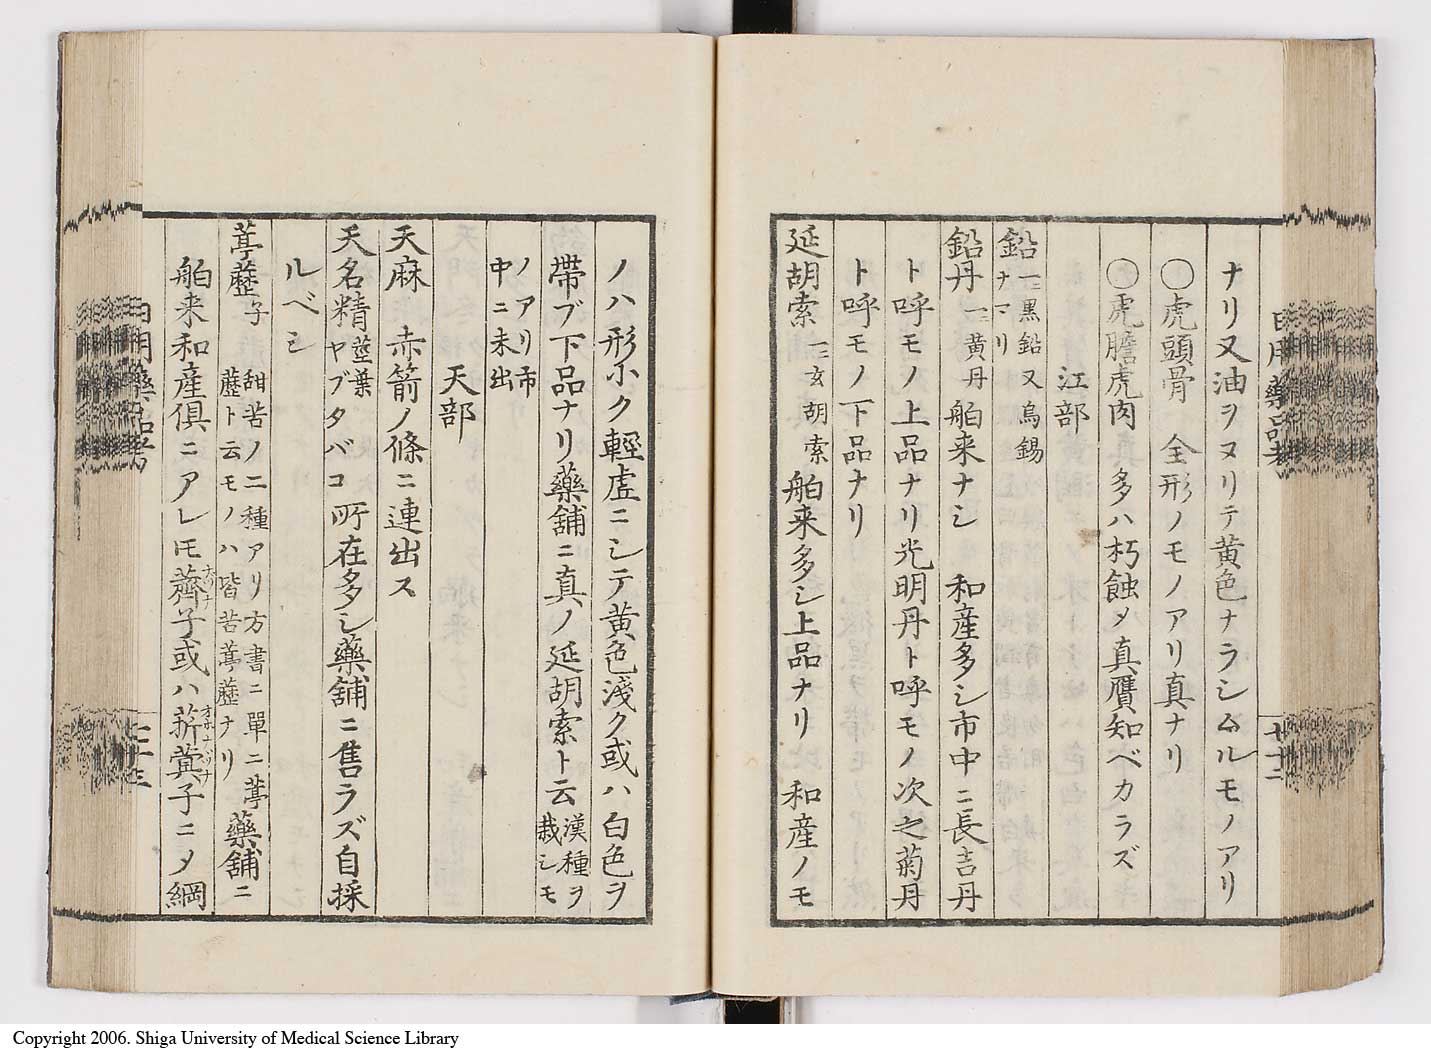 ナリ又油ヲヌリテ黄色ナラシムルモノアリ
〇虎頭骨 全形ノモノアリ真ナリ
〇虎膽虎肉 多ハ朽蝕〆真贋知ベカラズ
江部
鉛 一ニ黒鉛又烏錫
ナマリ
鉛丹 一ニ黄丹 舶来ナシ 和産多シ市中ニ長吉丹
ト呼モノ上品ナリ光明丹ト呼モノ次之菊丹
ト呼モノ下品ナリ
延胡索 一ニ玄胡索 舶来多シ上品ナリ 和産ノモ
ノハ形小ク輕虚ニシテ黄色淺ク或ハ白色ヲ
帶ブ下品ナリ藥舗ニ真ノ延胡索ト云 漢種ヲ
栽シモ
ノアリ市
中ニ未出
天部
天麻 赤箭ノ條ニ連出ス
天名精 莖葉
ヤブタバコ 所在多シ藥舗ニ售ラズ自採
ルベシ
葶藶子 甜苦ノ二種アリ方書ニ單ニ葶
藶ト云モノハ皆苦葶藶ナリ 藥舗ニ
舶来和産俱ニアレ𪜈薺子或ハ菥蓂子ニ〆綱
日用藥品考
廿二
日用藥品考
Copyright 2006. Shiga University of Medical Science Library